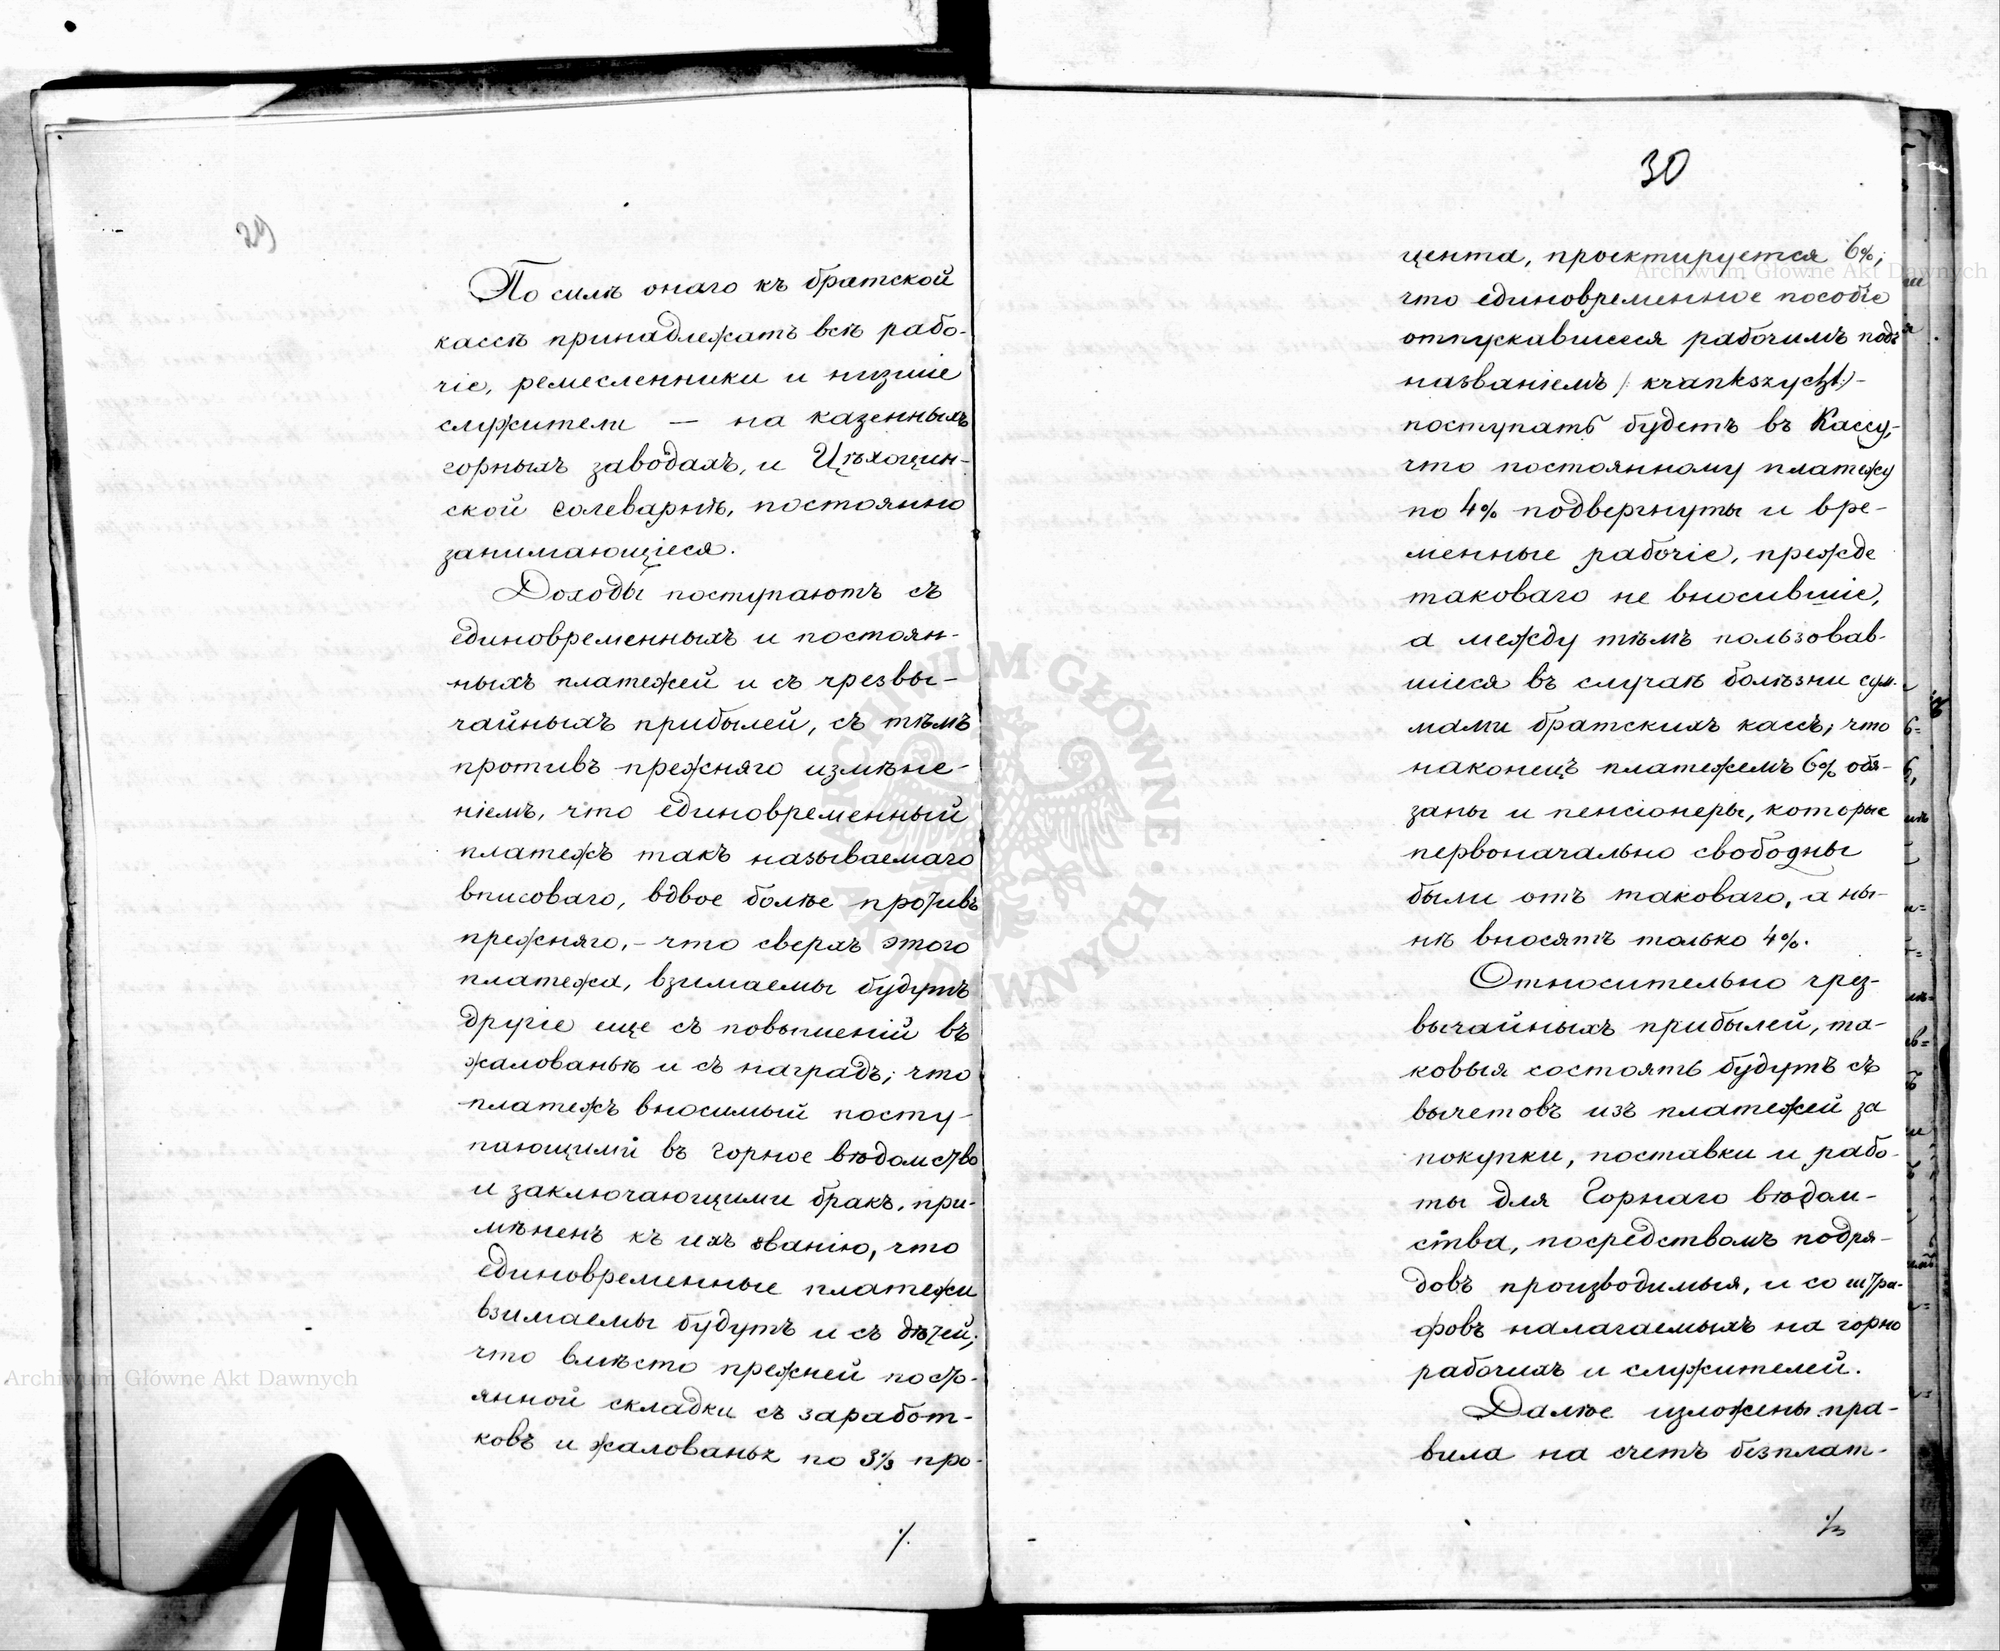 29
По силѣ онаго къ братской
кассѣ принадлежатъ всѣ рабо-
чіе, ремесленники и низшіе
служители — на казенныхъ
горныхъ заводахъ, и Цѣхоцин-
ской солеварнѣ, постоянно
занимающіеся.
Доходы поступаютъ съ
единовременныхъ и постоян-
ныхъ платежей и съ чрезвы-
чайныхъ прибылей, съ тѣмъ
противъ прежняго измѣне-
ніемъ, что единовременный
платежъ такъ называемаго
вписоваго, вдвое болѣе противъ
прежняго, - что сверхъ этого
платежа, взимаемы будутъ
другіе еще съ повышеній въ
жалованьѣ и съ наградъ; что
платежъ вносимый посту-
пающими въ горное вѣдомство
и заключающими бракъ, при-
мѣненъ къ ихъ званію, что
единовременные платежи
взимаемы будутъ и съ дѣтей;
что вмѣсто прежней посто-
янной складки съ заработ-
ковъ и жалованья по 3⅓ про-
/.
30
цента, проектируется 6%;
что единовременное пособіе
отпускавшееся рабочимъ подъ
названіемъ /: krankszycht :/ -
поступать будетъ въ Кассу,-
что постоянному платежу
по 4% подвергнуты и вре-
менные рабочіе, прежде
таковаго не вносившіе,
а между тѣмъ пользовав-
шіеся въ случаѣ болѣзни сум-
мами братскихъ кассъ; что
наконецъ платежемъ 6% обя-
заны и пенсіонеры, которые
первоначально свободны
были отъ таковаго, а ны-
нѣ вносятъ только 4%.
Относительно чрез-
вычайныхъ прибылей, та-
ковыя состоять будутъ съ
вычетовъ изъ платежей за
покупки, поставки и рабо-
ты для Горнаго вѣдом-
ства, посредствомъ подря-
довъ производимыя, и со штра-
фовъ налагаемыхъ на горно
рабочихъ и служителей.
Далѣе изложены пра-
вила на счетъ безплат-
Archiwum Główne Akt Dawnych
Archiwum Główne Akt Dawnych
ARCHIWUM GŁÓWNE AKT DAWNYCH